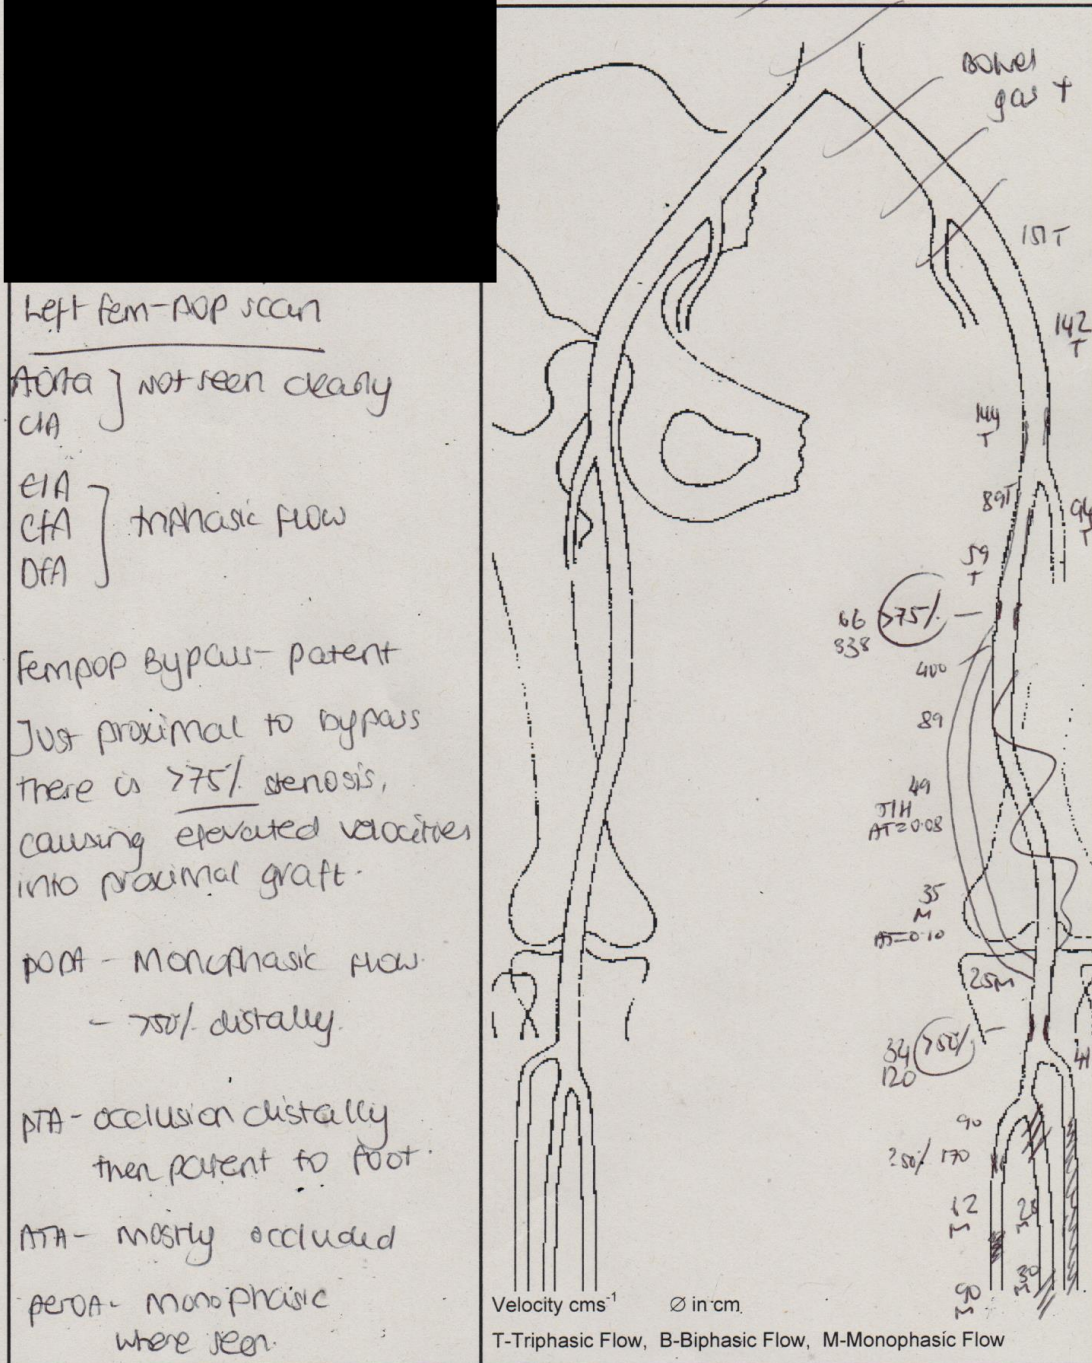 Left fem-pop scan
Aorta
CIA
] not seen clearly
EIA
CFA
DFA
] triphasic flow
Fempop Bypass - patent
Just proximal to bypass
there is >75% stenosis,
causing elevated velocities
into proximal graft.
POPA - Monophasic flow.
- >50% distally.
PTA - occlusion distally
then patent to foot.
ATA - mostly occluded
PEROA - Monophasic
where seen.
Bowel
gas T
151 T
142
T
144
T
89T
94
T
59
T
>75%
338
400
89
49
AT=0.08
35
M
AT=0.10
25M
34
>50%
120
90
170
62
M
28
M
90
M
30
M
Velocity cms⁻¹ Ø in cm
T-Triphasic Flow, B-Biphasic Flow, M-Monophasic Flow